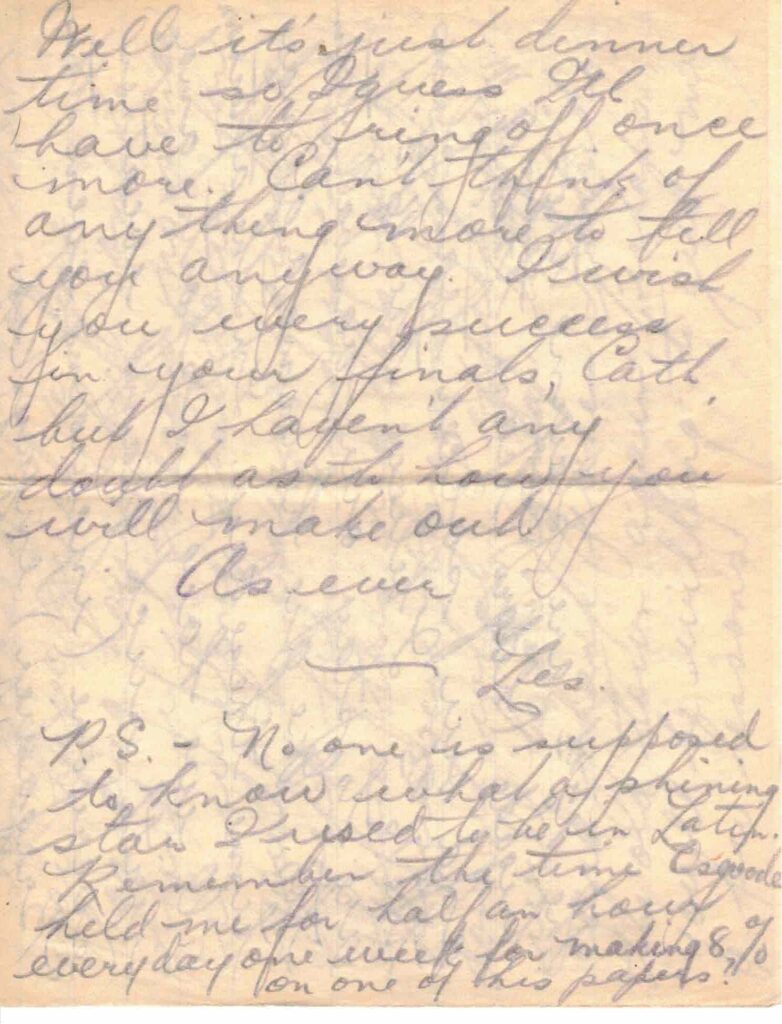 Well it's just dinner
time so I guess I'll
have to ring off once
more. Can't think of
anything more to tell
you anyway. I wish
you every success
in your finals, Cath,
but I haven't any
doubt as to how you
will make out.
As ever
— Les.
P.S. - No one is supposed
to know what a shining
star I used to be in Latin.
Remember the time Osgoode
held me for half an hour
everyday one week for making 8%
on one of his papers?